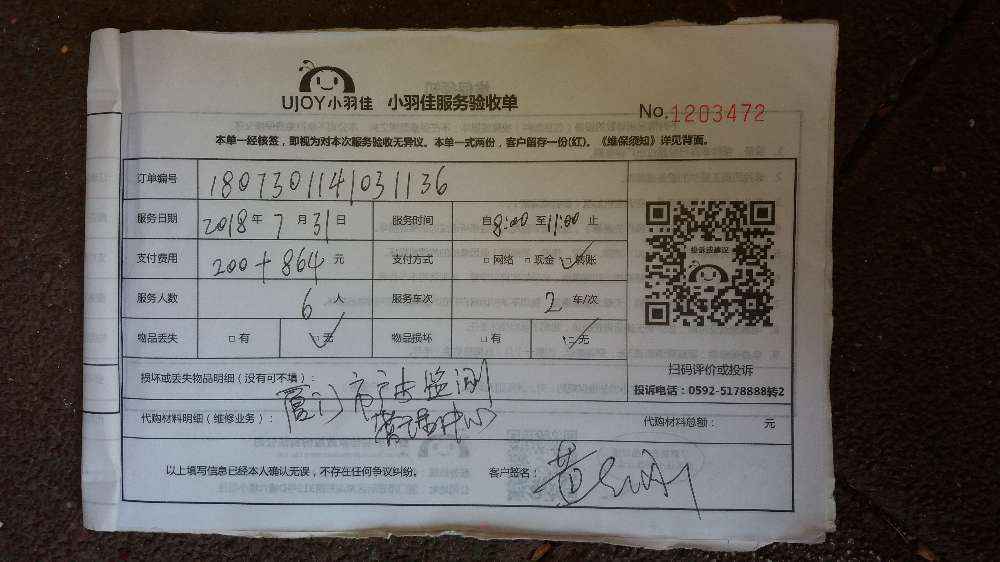 UJOY小羽佳 小羽佳服务验收单
No.1203472
本单一经核签，即视为对本次服务验收无异议。本单一式两份，客户留存一份(红)。《维保须知》详见背面。
订单编号 1807301141031136
服务日期 2018年 7月 31日 服务时间 自8:00至11:00止
支付费用 200+864 元 支付方式 □网络 □现金 □转账
服务人数 6人 服务车次 2 车/次
物品丢失 □有 □无 物品损坏 □有 □无
投诉或建议
扫码评价或投诉
投诉电话：0592-5178888转2
损坏或丢失物品明细（没有可不填）：
厦门市 监测
管理中心
代购材料明细（维修业务）： 代购材料总额： 元
以上填写信息已经本人确认无误，不存在任何争议纠纷。 客户签名： 黄